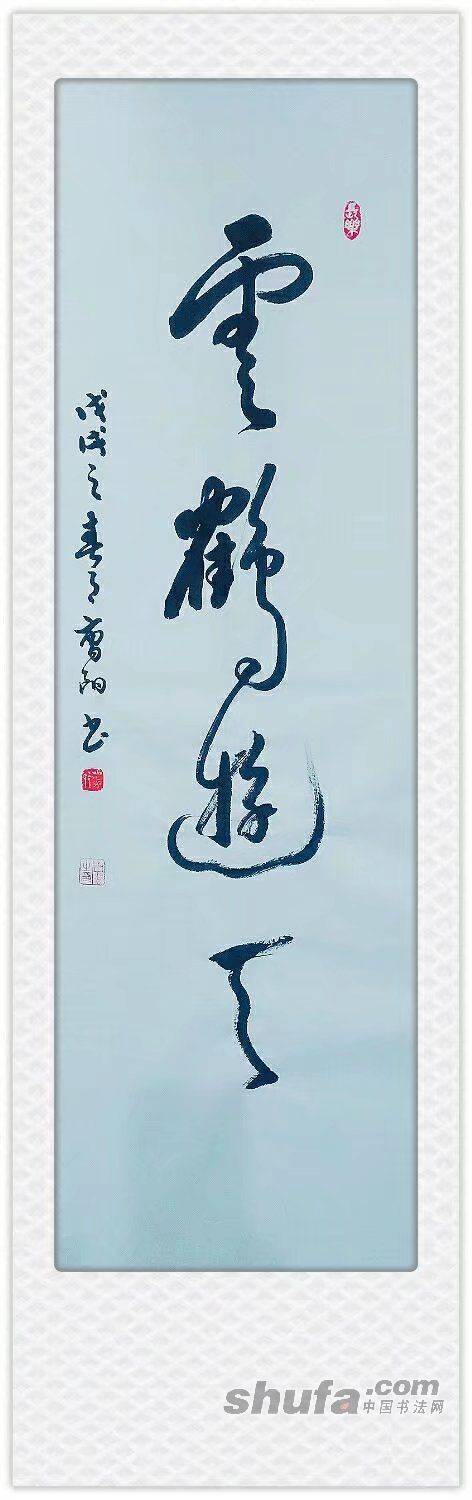 雲鶴遊天
戊戌之春月曹陽书
長樂
shufa.com
中国书法网